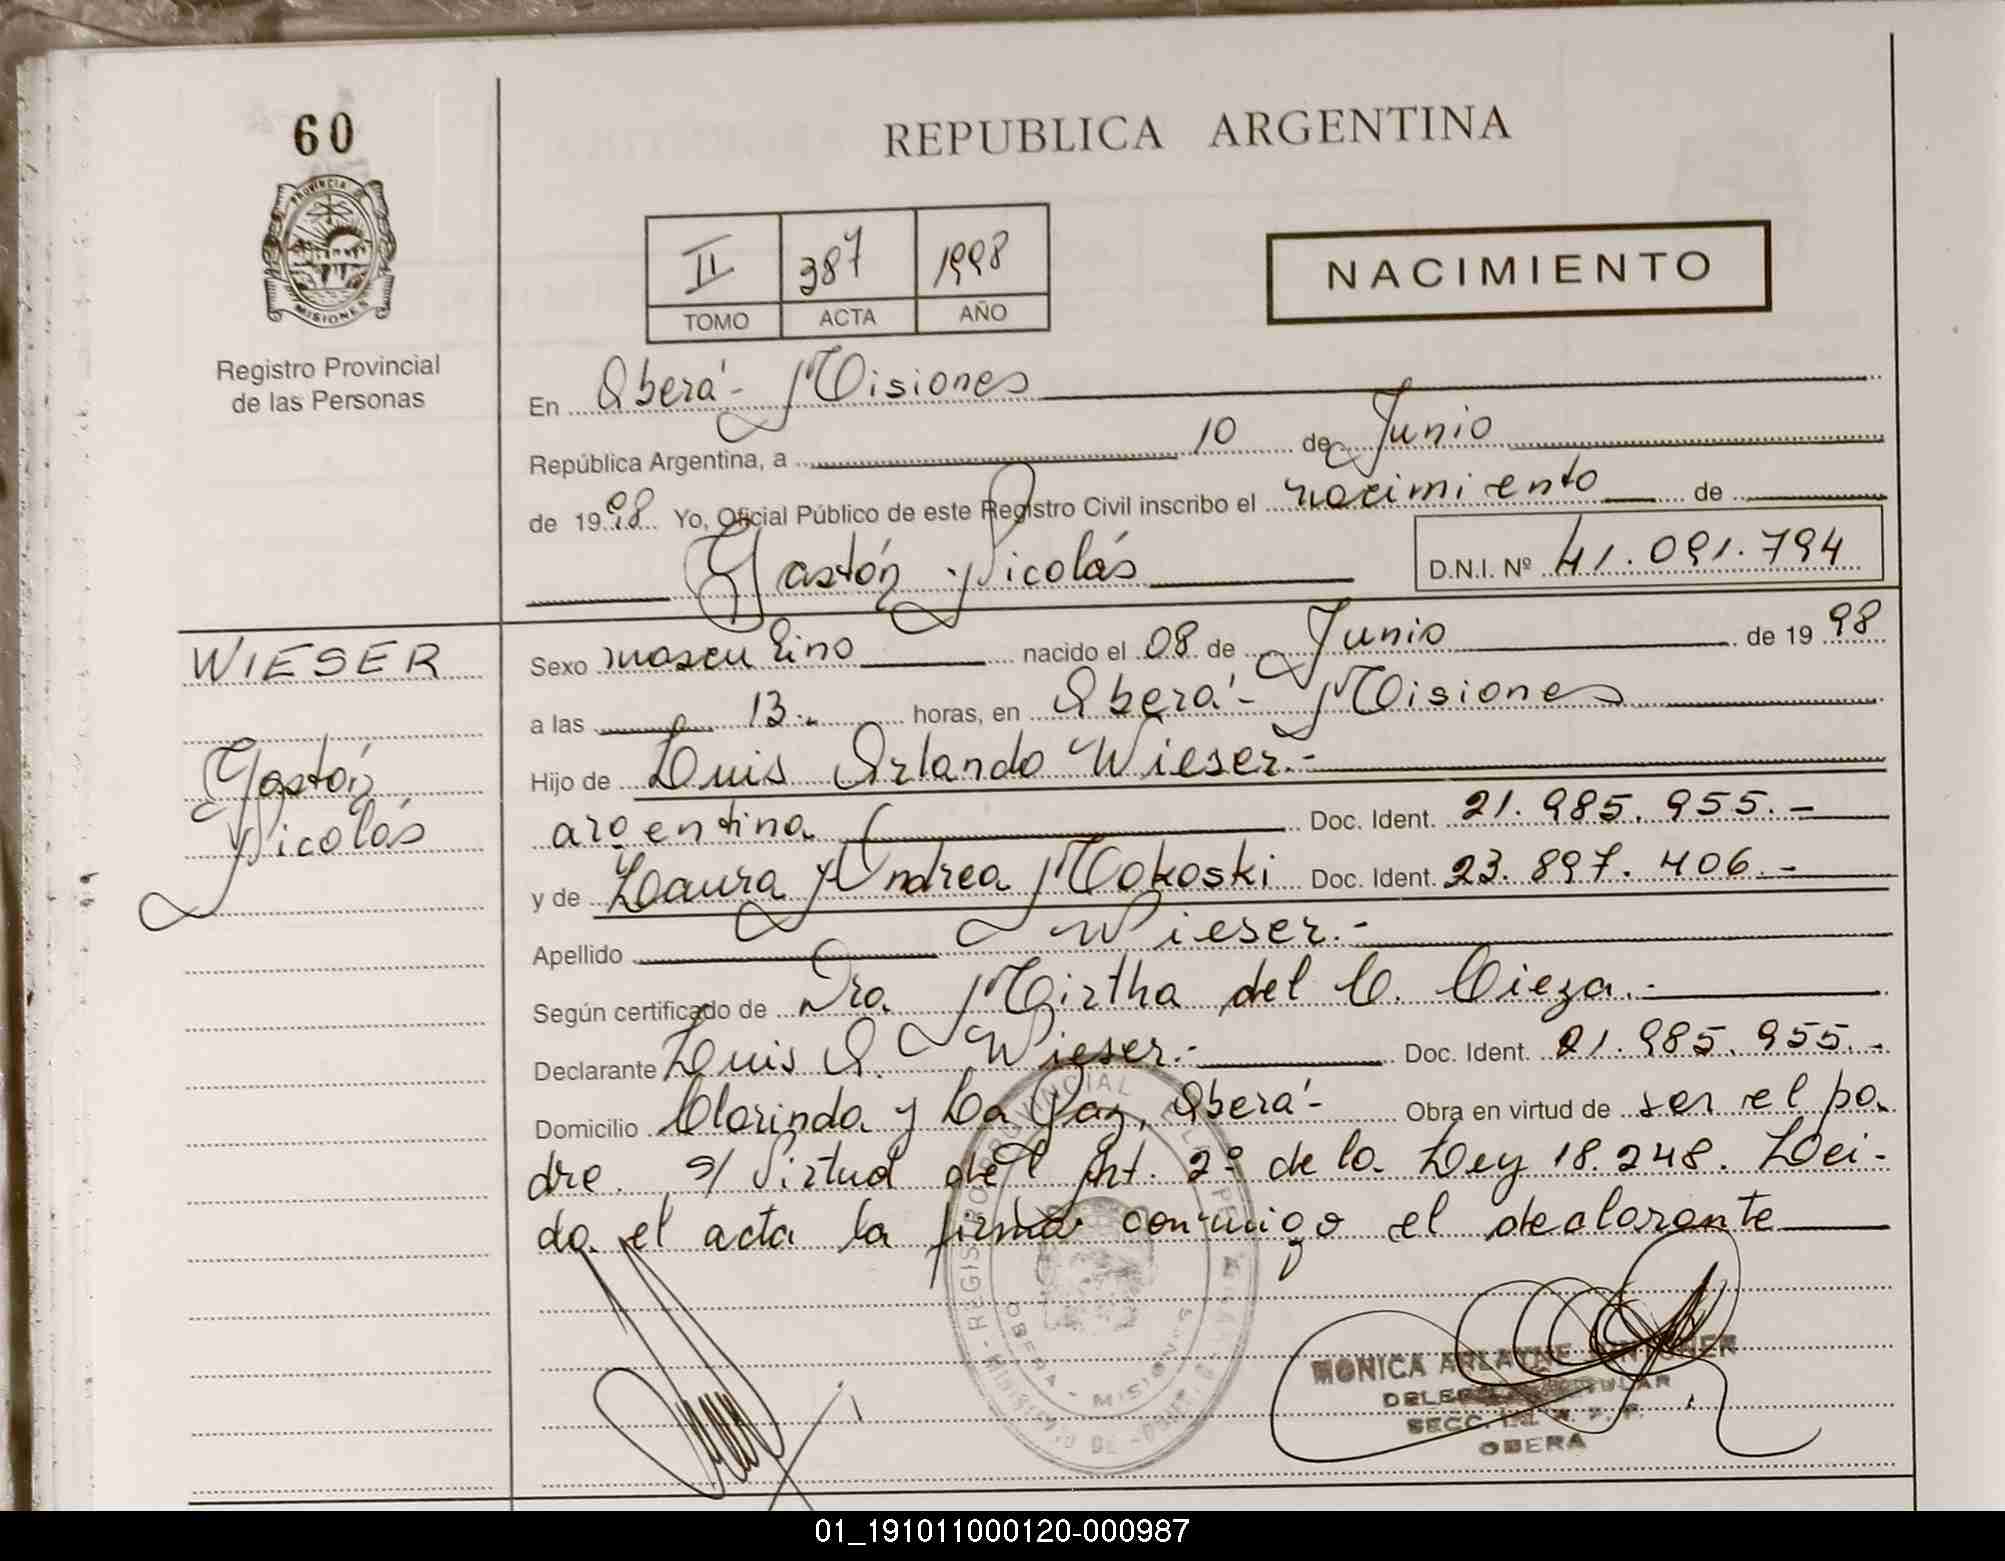 60
REPUBLICA ARGENTINA
PROVINCIA D
MISIONES
II 387 1998
TOMO ACTA AÑO
NACIMIENTO
Registro Provincial
de las Personas
En Oberá - Misiones
República Argentina, a 10 de Junio
de 1998 Yo, Oficial Público de este Registro Civil inscribo el nacimiento de
Gastón Nicolás D.N.I. Nº 41.091.794
WIESER
Gastón
Nicolás
Sexo masculino nacido el 08 de Junio de 1998
a las 13.- horas, en Oberá - Misiones
Hijo de Luis Orlando Wieser.-
argentina Doc. Ident. 21.985.955.-
y de Laura Andrea Mokoski Doc. Ident. 23.897.406.-
Apellido Wieser.-
Según certificado de Dra. Mirtha del C. Cieza.-
Declarante Luis O. Wieser.- Doc. Ident. 21.985.955.-
Domicilio Clorinda y La Paz, Oberá - Obra en virtud de ser el pa-
dre. s/ Virtud del Art. 2º de la Ley 18.248. Leí-
da el acta la firma conmigo el declarante
REGISTRO PROVINCIAL DE LAS PE
OBERA - MISIONES
MINISTERIO DE
MONICA ARLAYNE
OBERA
01_191011000120-000987